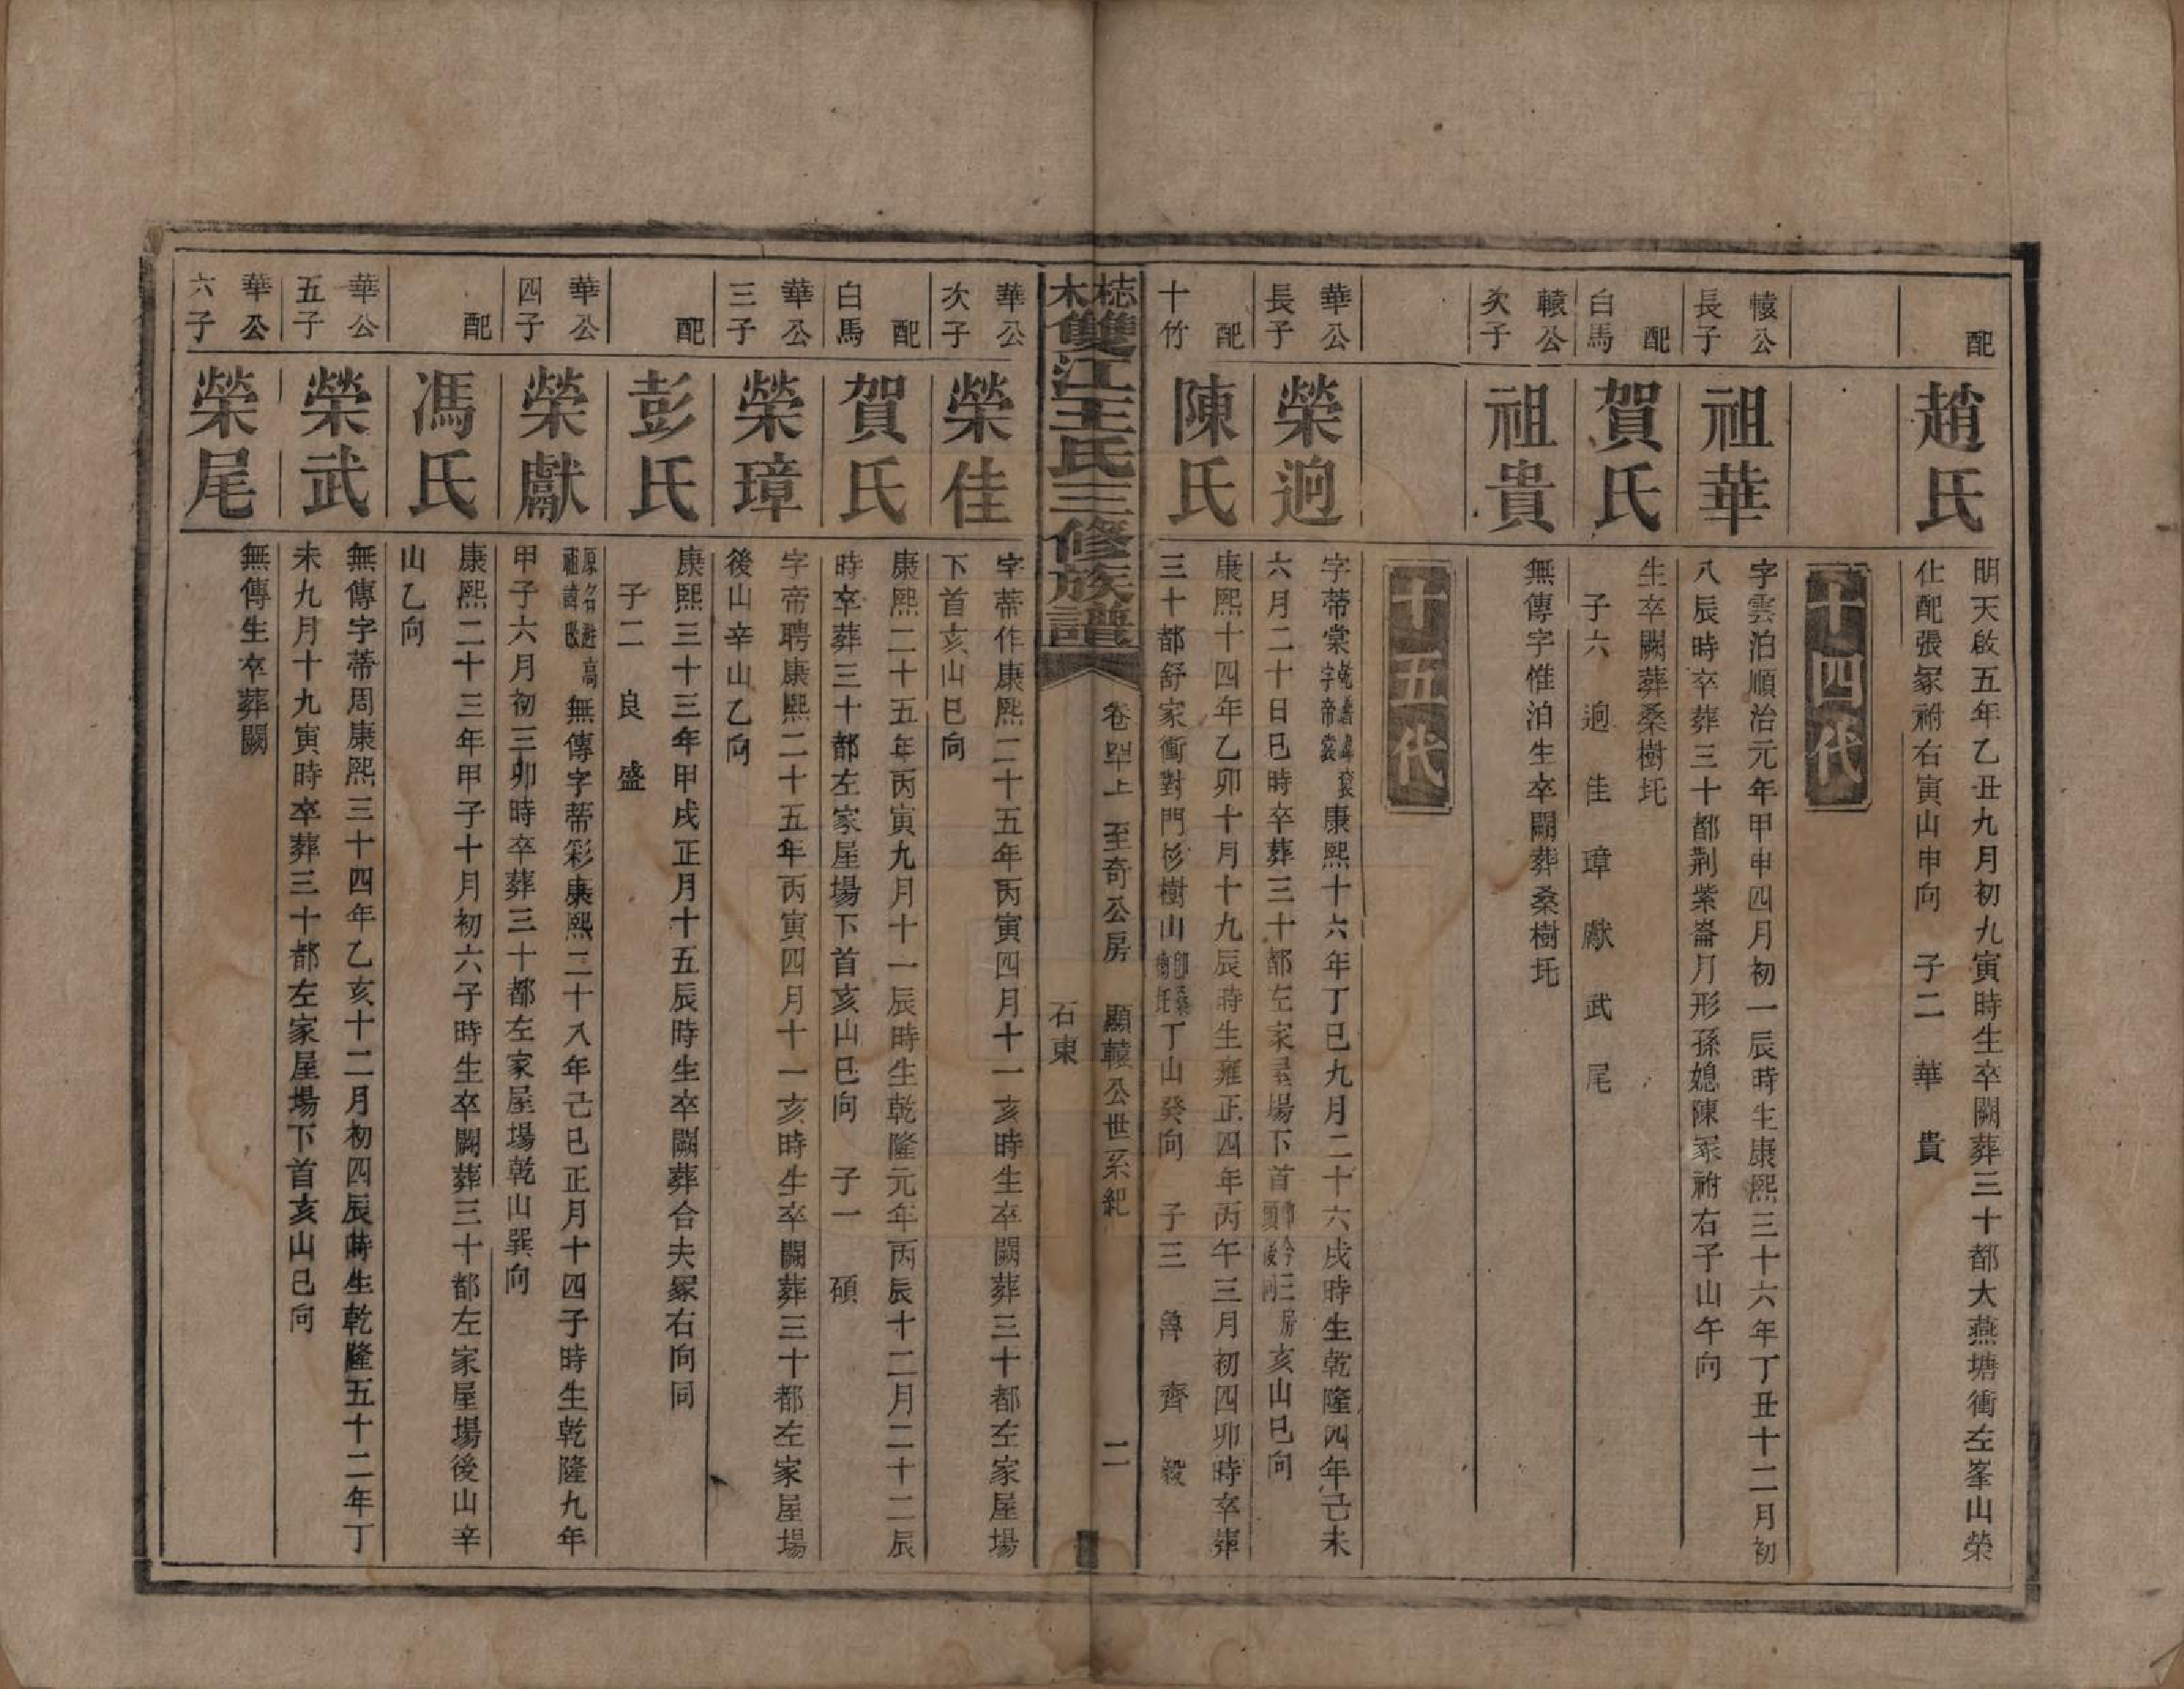 配
趙氏
明天啟五年乙丑九月初九寅時生卒闕葬三十都大燕塘衝左峯山榮
仕配張冢祔右寅山申向 子二 華 貴
十四代
轅公
長子
祖華
字雲泊順治元年甲申四月初一辰時生康熙三十六年丁丑十二月初
八辰時卒葬三十都荆紫崙月形孫媳陳冢祔右子山午向
配
白馬
賀氏
生卒闕葬桑樹圫
子六 逈 佳 璋 獻 武 尾
轅公
次子
祖貴
無傳字惟泊生卒闕葬桑樹圫
十五代
華公
長子
榮逈
字蒂棠康熙十六年丁巳九月二十六戌時生乾隆四年己未
六月二十日巳時卒葬三十都左家屋場下首亥山巳向
配
十竹
陳氏
康熙十四年乙卯十月十九辰時生雍正四年丙午三月初四卯時卒葬
三十都舒家衝對門杉樹山丁山癸向 子三 魯 齊 毅
梽木雙江王氏三修族譜
卷四上 至奇公房 顯轅公世系紀 二
石東
華公
次子
榮佳
字蒂作康熙二十五年丙寅四月十一亥時生卒闕葬三十都左家屋場
下首亥山巳向
配
白馬
賀氏
康熙二十五年丙寅九月十一辰時生乾隆元年丙辰十二月二十二辰
時卒葬三十都左家屋場下首亥山巳向 子一 碩
華公
三子
榮璋
字帝聘康熙二十五年丙寅四月十一亥時生卒闕葬三十都左家屋場
後山辛山乙向
配
彭氏
康熙三十三年甲戌正月十五辰時生卒闕葬合夫冢右向同
子二 良 盛
華公
四子
榮獻
原名避高
祖諱改
無傳字蒂彩康熙二十八年己巳正月十四子時生乾隆九年
甲子六月初三卯時卒葬三十都左家屋場乾山巽向
配
馮氏
康熙二十三年甲子十月初六子時生卒闕葬三十都左家屋場後山辛
山乙向
華公
五子
榮武
無傳字蒂周康熙三十四年乙亥十二月初四辰時生乾隆五十二年丁
未九月十九寅時卒葬三十都左家屋場下首亥山巳向
華公
六子
榮尾
無傳生卒葬闕